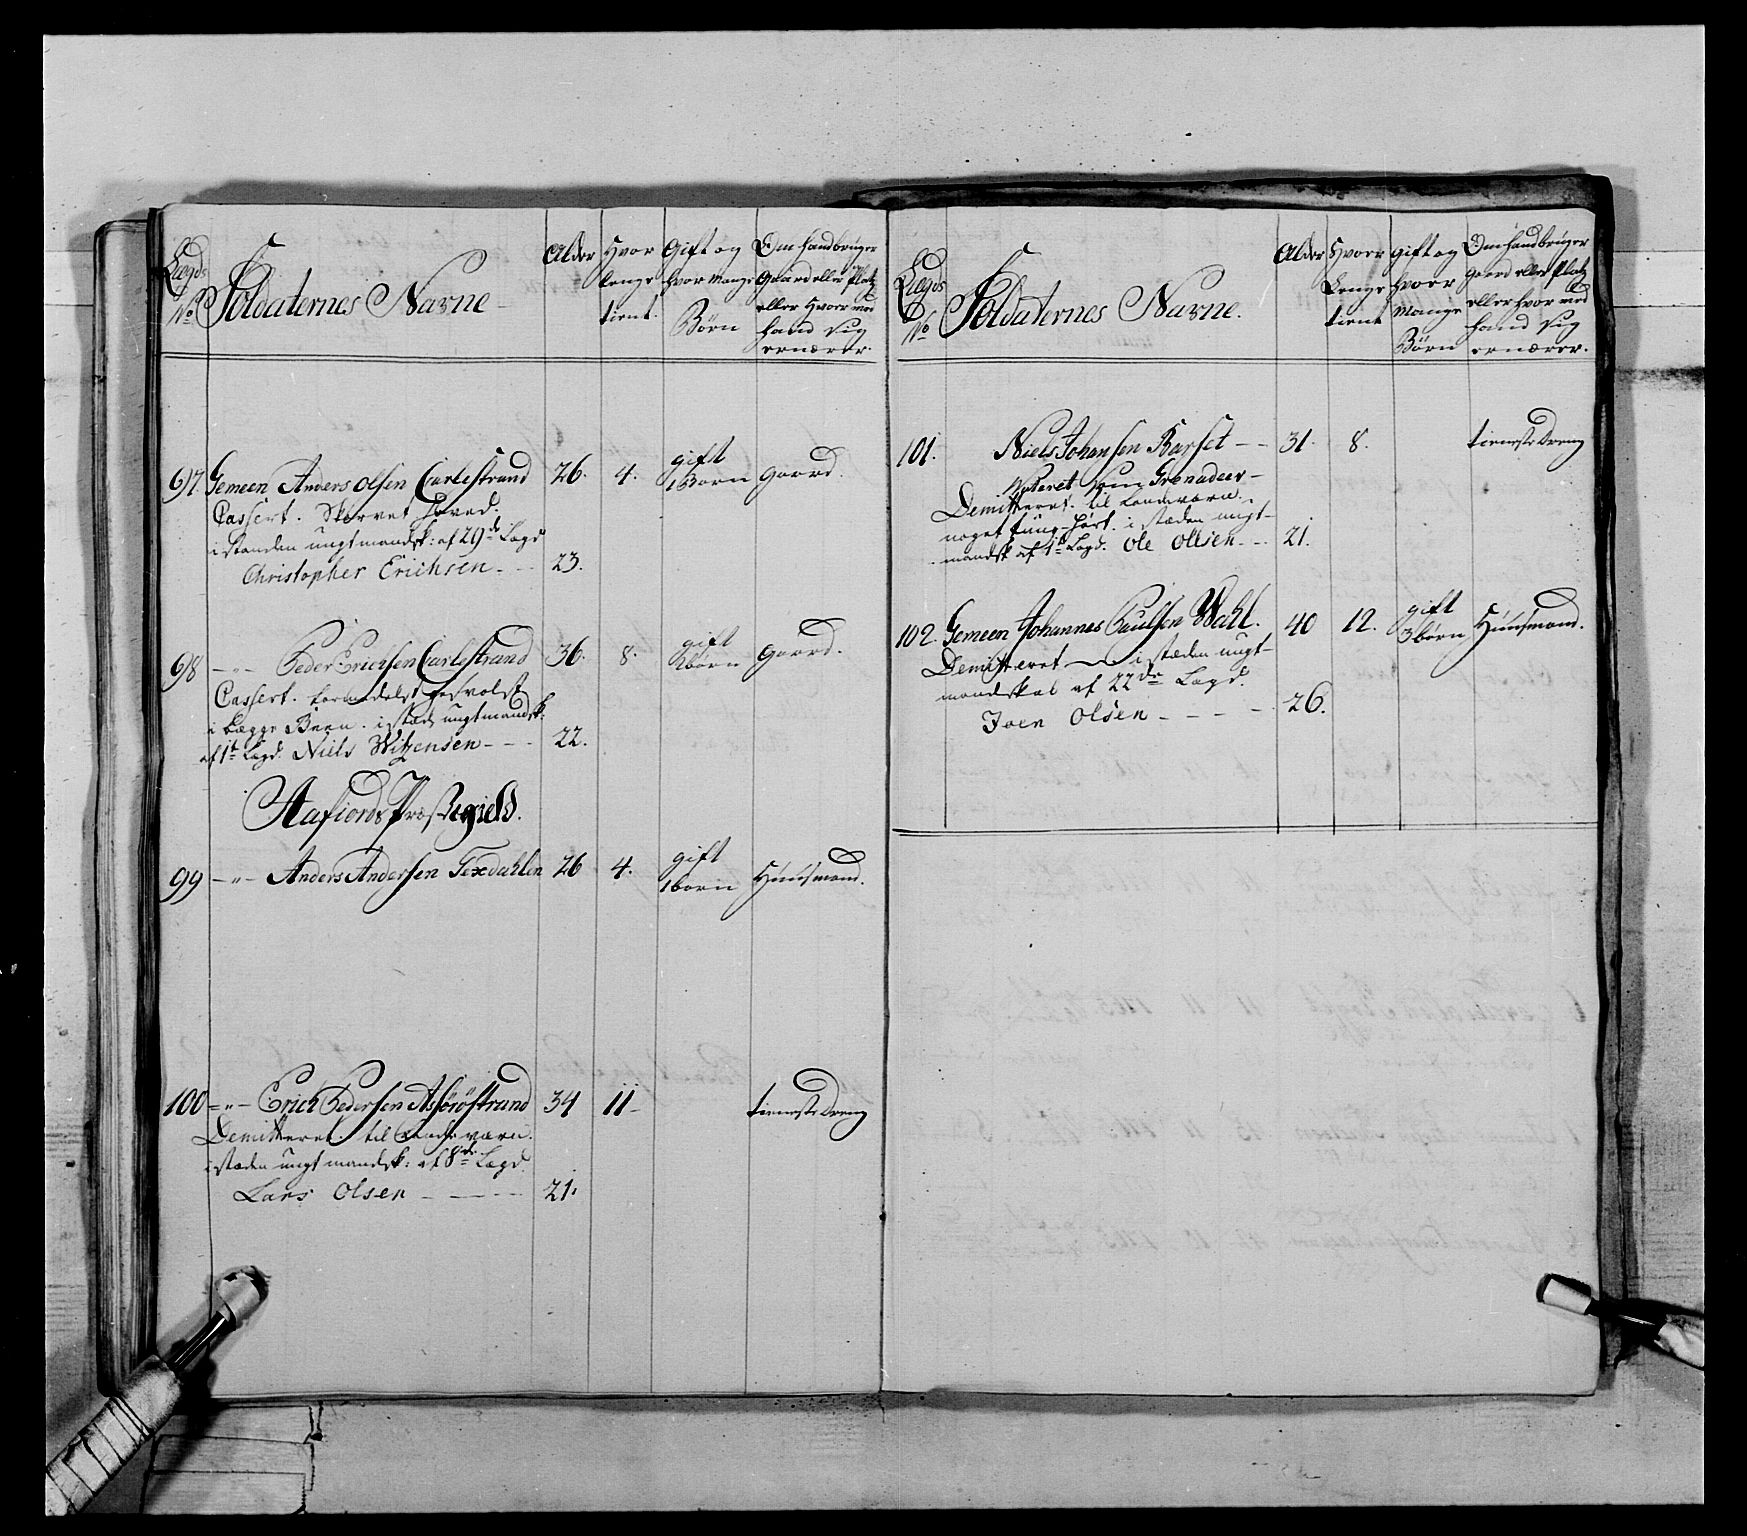 Lægds No
Soldaternes Navne
Alder
Hvor lenge tient.
Gift og hvor mange Börn
Om hand bruger Gaard eller Platz eller Hvor med hand sig ernærer.
97. Gemeen Anders Olsen Carlestrand 26. 4. gift 1 Barn gaard.
Cassert. Skurvet Hoved.
i stæden ungt mandsk: af 29de Lægd
Christopher Erichsen - - 23.
98 -"- Peder Erichsen Carlestrand 36. 8. gift börn gaard.
Cassert. formedelst
i begge Been. i stæd ungtmandsk:
af 1te Lægd. Niels Witzensen - - - 22.
Aafiords Præstegield.
99 -"- Anders Andersen Texdahlen 26 4. gift 1 börn Huusmand.
100 -"- Erich Pedersen Assöröstrand 34 11 - tieneste dreng
Demitteret til Landeværn.
i stæden ungt mandsk: af 8de Lægd.
Lars Olsen - - - - 21.
Lægds No
Soldaternes Navne.
Alder
Hvor Lenge tient
gift og hvor mange Börn
Om hand bruger gaard eller Platz eller hvor med hand sig ernærer.
101. Niels Johansen Barset - - 31. 8. tieneste dreng
Noteret som Grenadeer -
Demitteret til Landeværn.
noget tung-hört. i stæden ungt-
mandsk af 1te Lægd. Ole Olsen - - 21.
102. Gemeen Johannes Paulsen Wahl. 40 12. gift 3 börn Huusmand.
Demitteret i stæden ungt-
mandskab af 22de Lægd.
Joen Olsen - - - - 26.